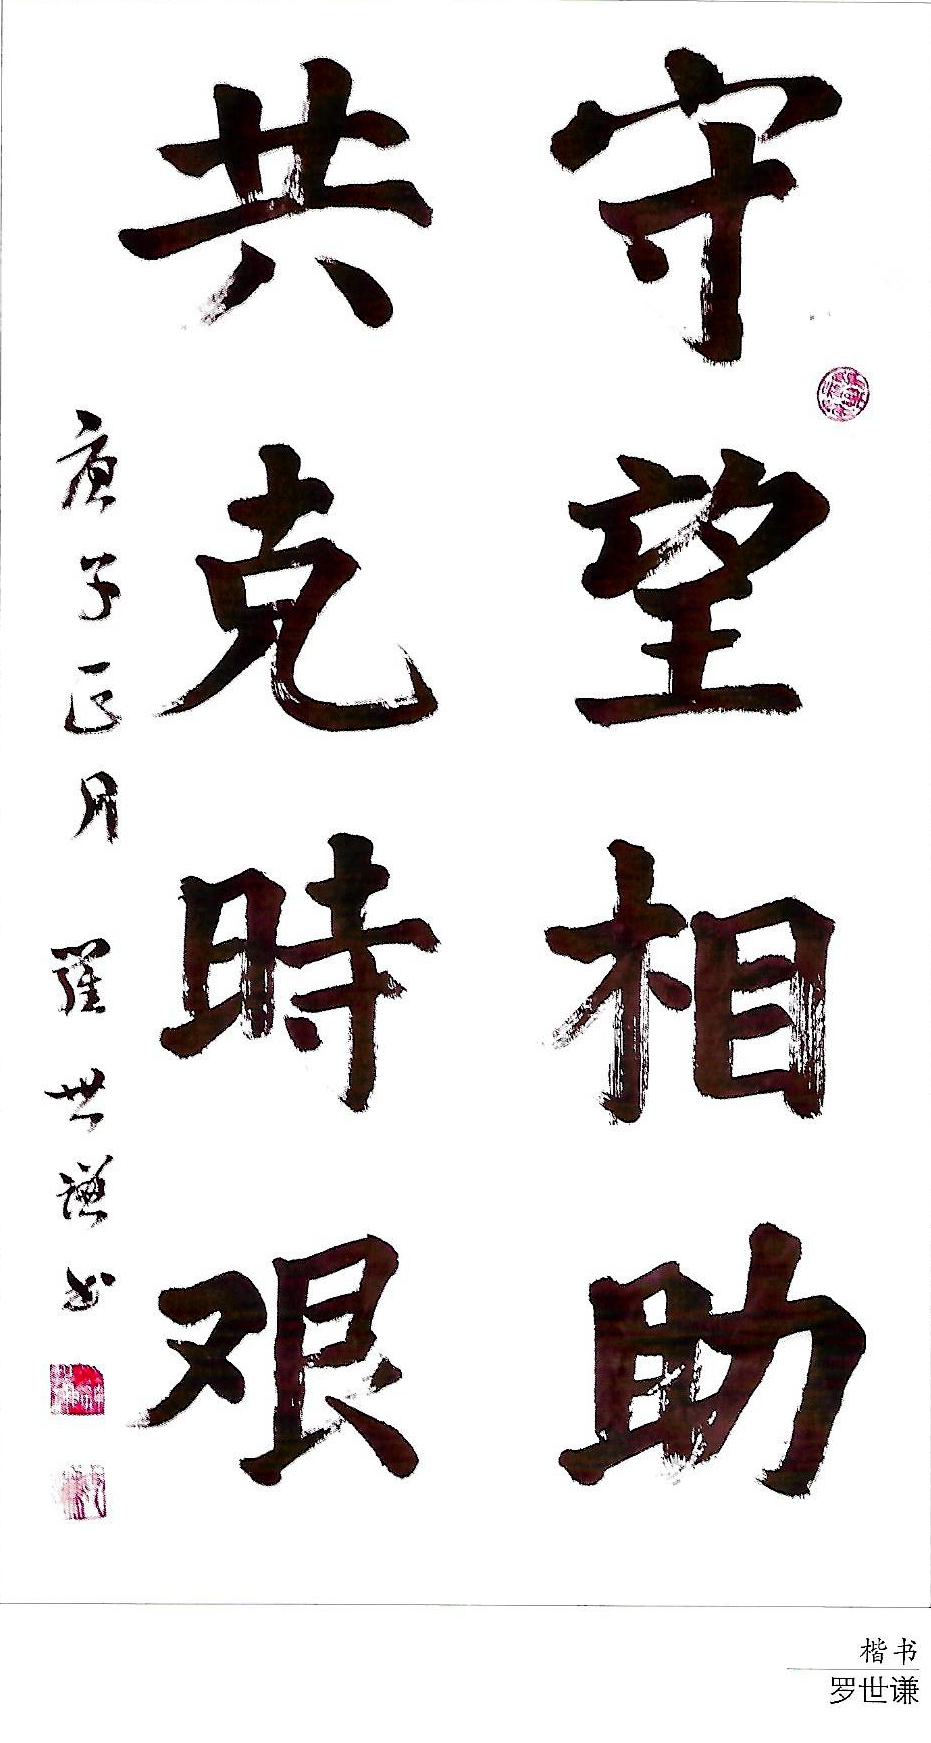 守望相助
共克時艰
庚子正月 羅世謙书
楷书
罗世谦